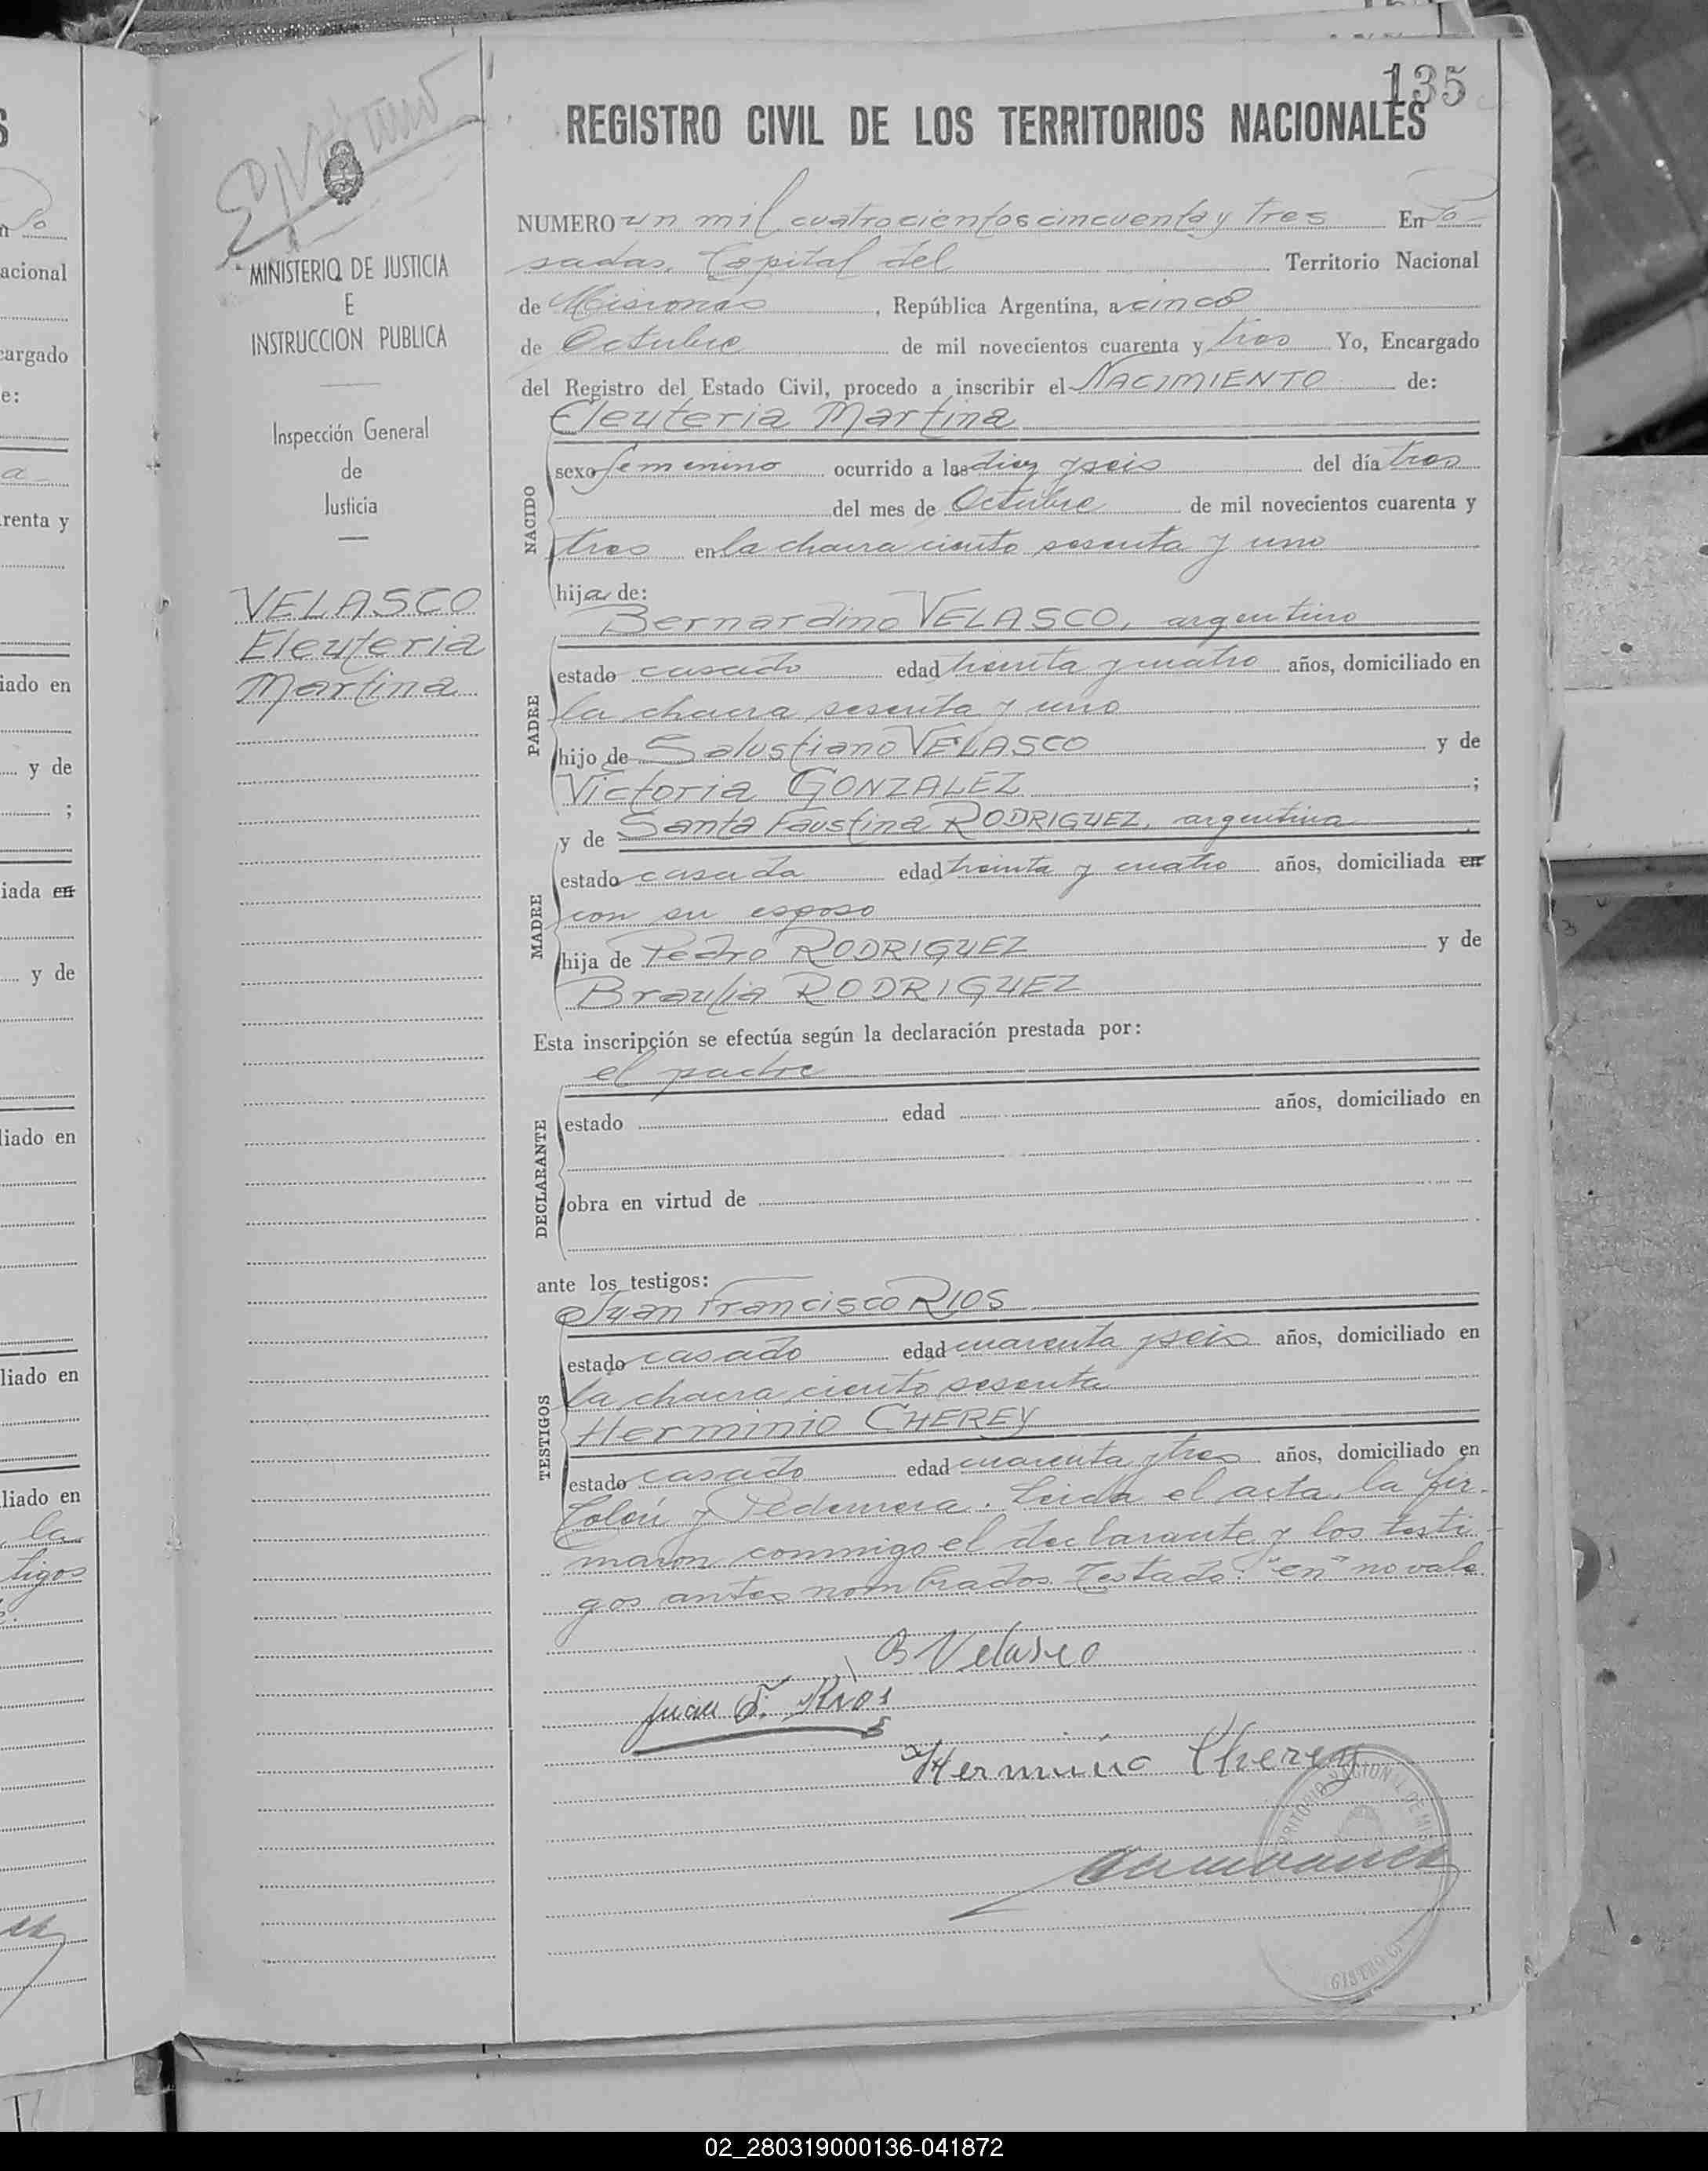 135
REGISTRO CIVIL DE LOS TERRITORIOS NACIONALES
MINISTERIO DE JUSTICIA
E
INSTRUCCION PUBLICA
Inspección General
de
Justicia
VELASCO
Eleuteria
Martina
NUMERO un mil cuatrocientos cincuenta y tres En Po
sadas, Capital del Territorio Nacional
de Misiones, República Argentina, a cinco
de Octubre de mil novecientos cuarenta y tres Yo, Encargado
del Registro del Estado Civil, procedo a inscribir el NACIMIENTO de:
Eleuteria Martina
NACIDO
sexo femenino ocurrido a las diez y seis del día tres
del mes de Octubre de mil novecientos cuarenta y
tres en la chacra ciento sesenta y uno
hija de:
Bernardino VELASCO, argentino
PADRE
estado casado edad treinta y cuatro años, domiciliado en
la chacra sesenta y uno
hijo de Salustiano VELASCO y de
Victoria GONZALEZ ;
y de Santa Faustina RODRIGUEZ, argentina
MADRE
estado casada edad treinta y cuatro años, domiciliada en
con su esposo
hija de Pedro RODRIGUEZ y de
Braulia RODRIGUEZ
Esta inscripción se efectúa según la declaración prestada por:
el padre
DECLARANTE
estado edad años, domiciliado en
obra en virtud de
ante los testigos:
Juan Francisco RIOS
TESTIGOS
estado casado edad cuarenta y seis años, domiciliado en
la chacra ciento sesenta
Herminio CHEREY
estado casado edad cuarenta y tres años, domiciliado en
Colón y Pedernera. Leida el acta, la fir-
maron conmigo el declarante y los testi-
gos antes nombrados. Testado: "en" no vale.
B Velasco
Juan F. Rios
Herminio Cherey
02_280319000136-041872